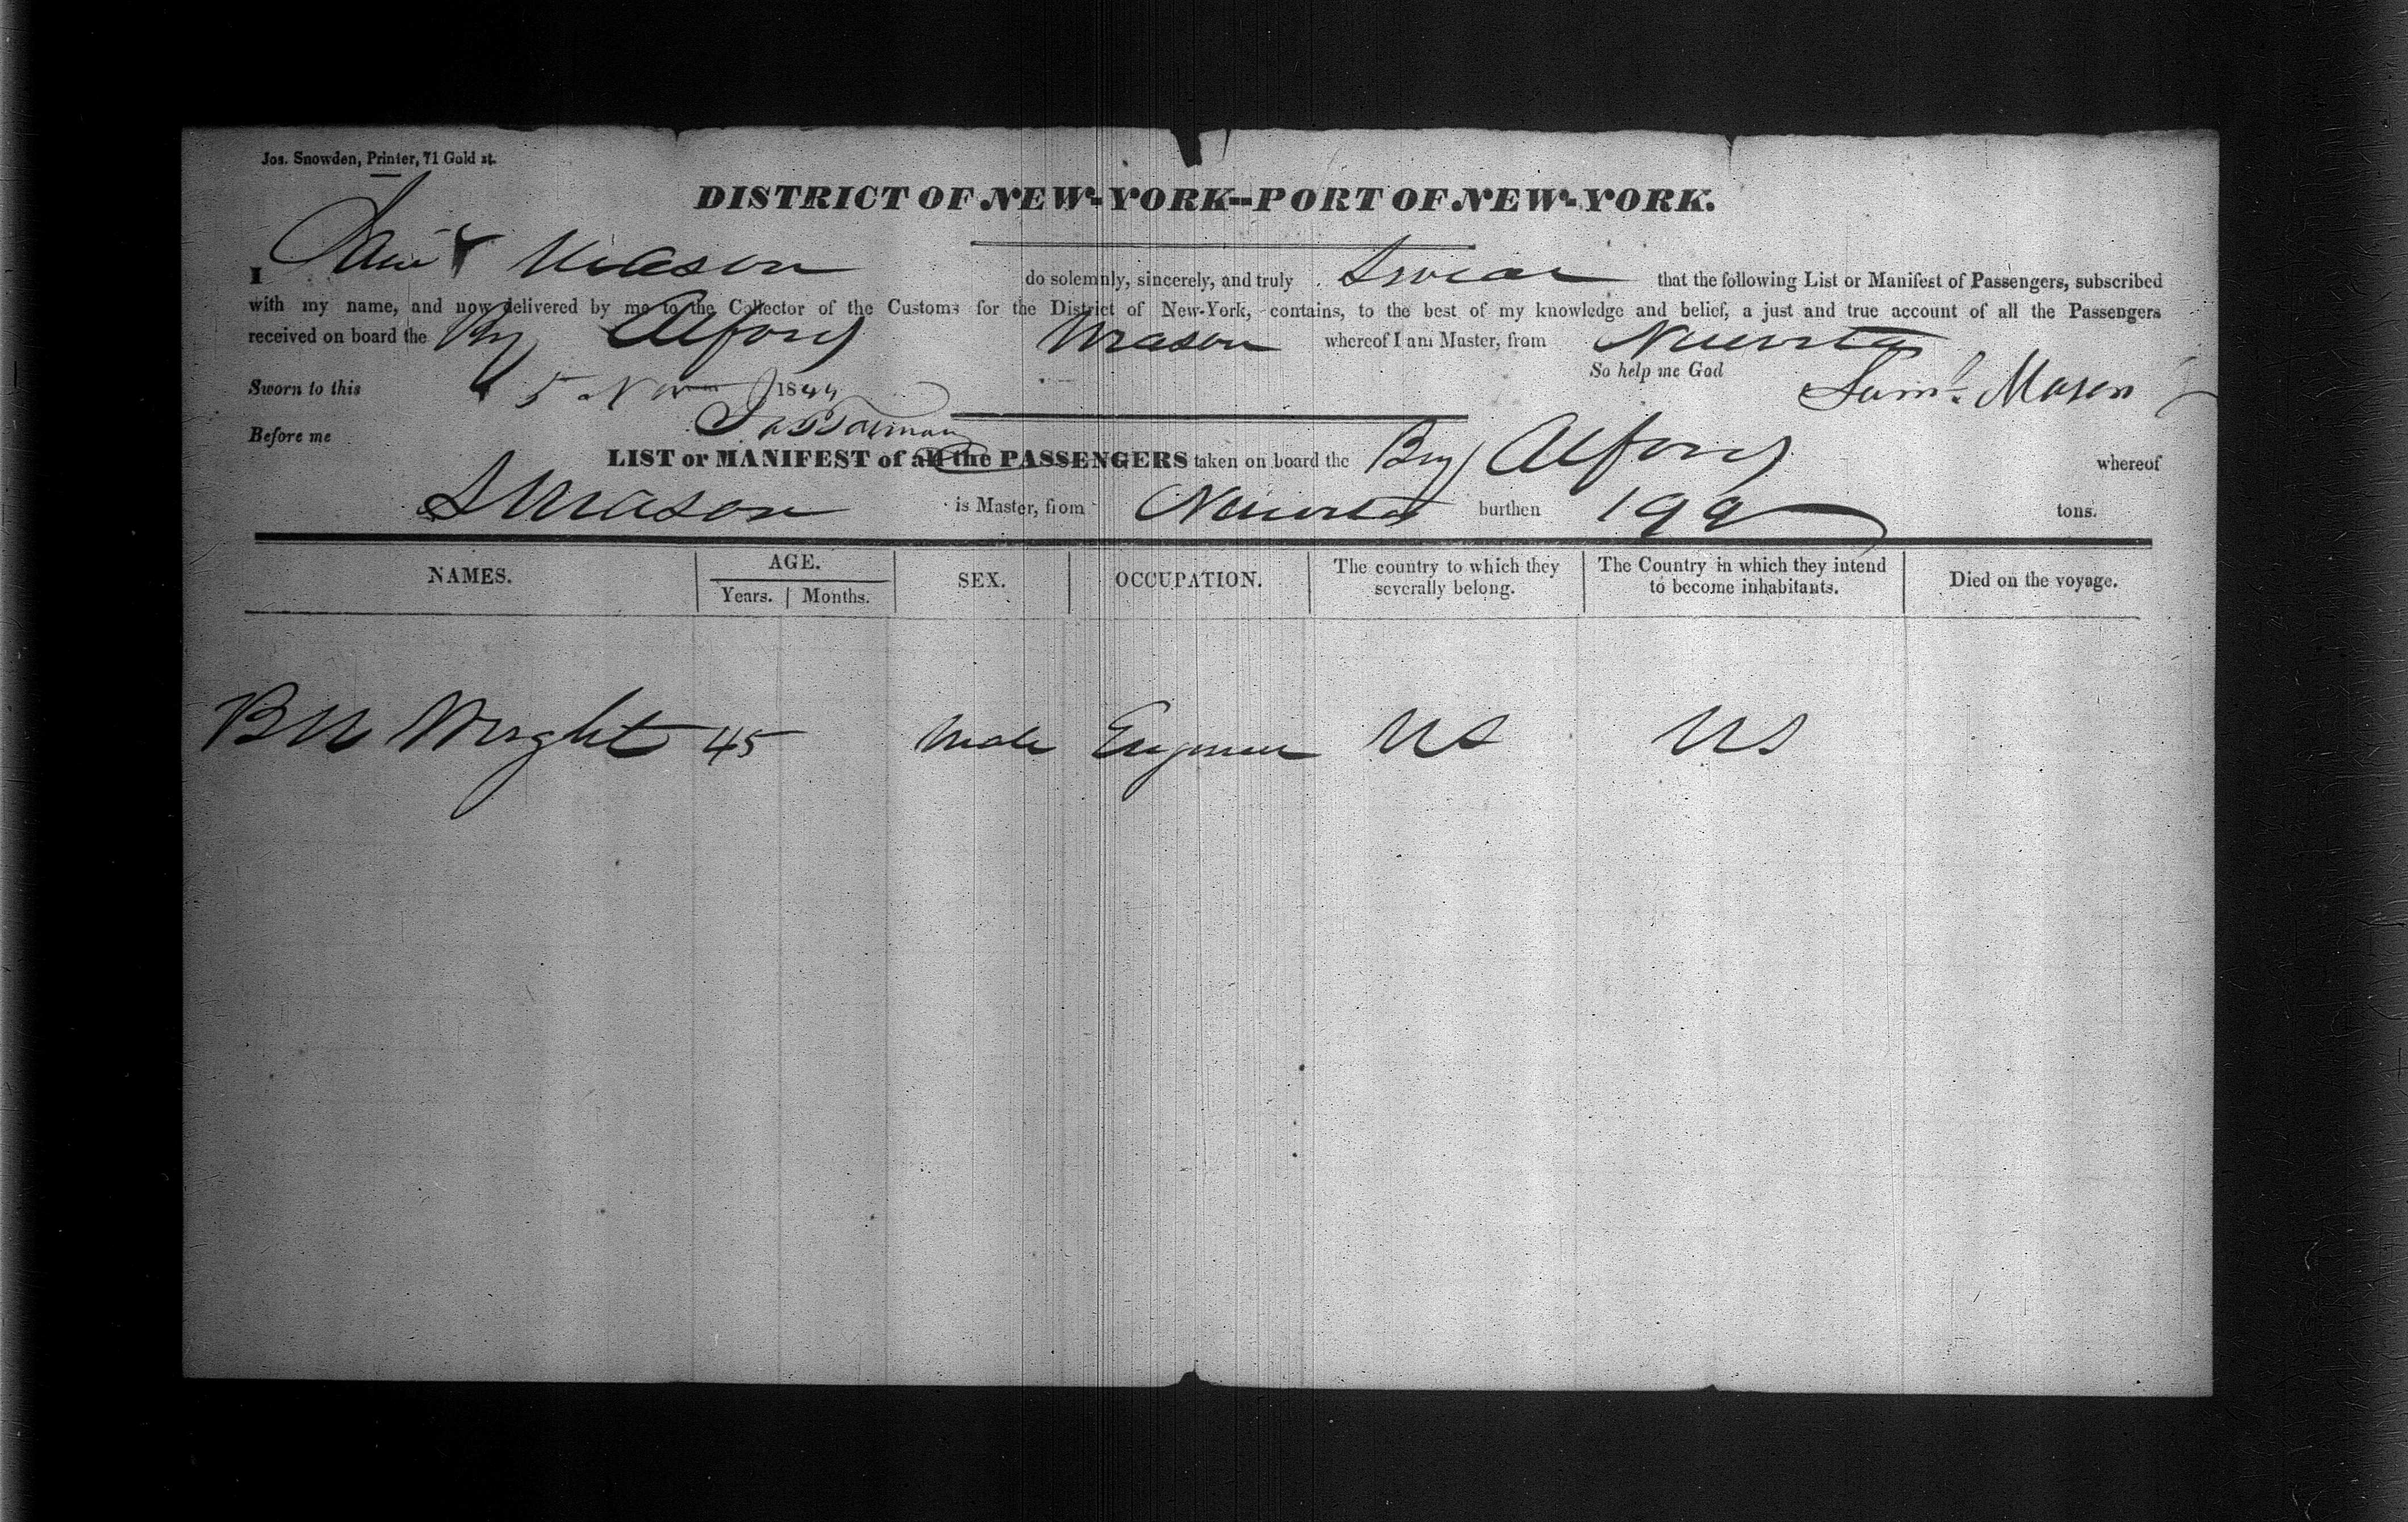 Jos. Snowden, Printer, 71 Gold st.
DISTRICT OF NEW-YORK--PORT OF NEW-YORK.
I Sam Mason do solemnly, sincerely, and truly Swear that the following List or Manifest of Passengers, subscribed
with my name, and now delivered by me to the Collector of the Customs for the District of New-York, contains, to the best of my knowledge and belief, a just and true account of all the Passengers
received on board the Brig Mason whereof I am Master, from Nuevitas
So help me God
Sworn to this 5 Nov 1844 Saml. Mason
Before me
LIST or MANIFEST of all the PASSENGERS taken on board the Brig whereof
S Mason is Master, from Nuevitas burthen 199 tons.
NAMES. AGE. Years. Months. SEX. OCCUPATION. The country to which they severally belong. The Country in which they intend to become inhabitants. Died on the voyage.
Wright 45 Male Engineer US US